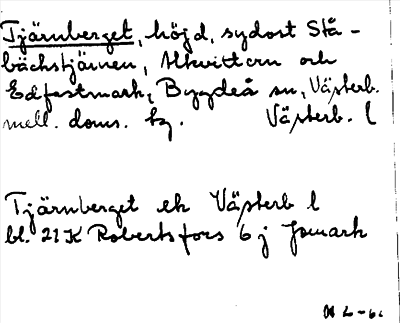 Tjärnberget, höjd, sydost Stå-
bäckstjärnen, Åkvittern och
Edfastmark, Bygdeå sn, Västerb.
mell. doms. tg. Västerb. l
Tjärnberget ek Västerb l
bl. 21K Robertsfors 6 j Jomark